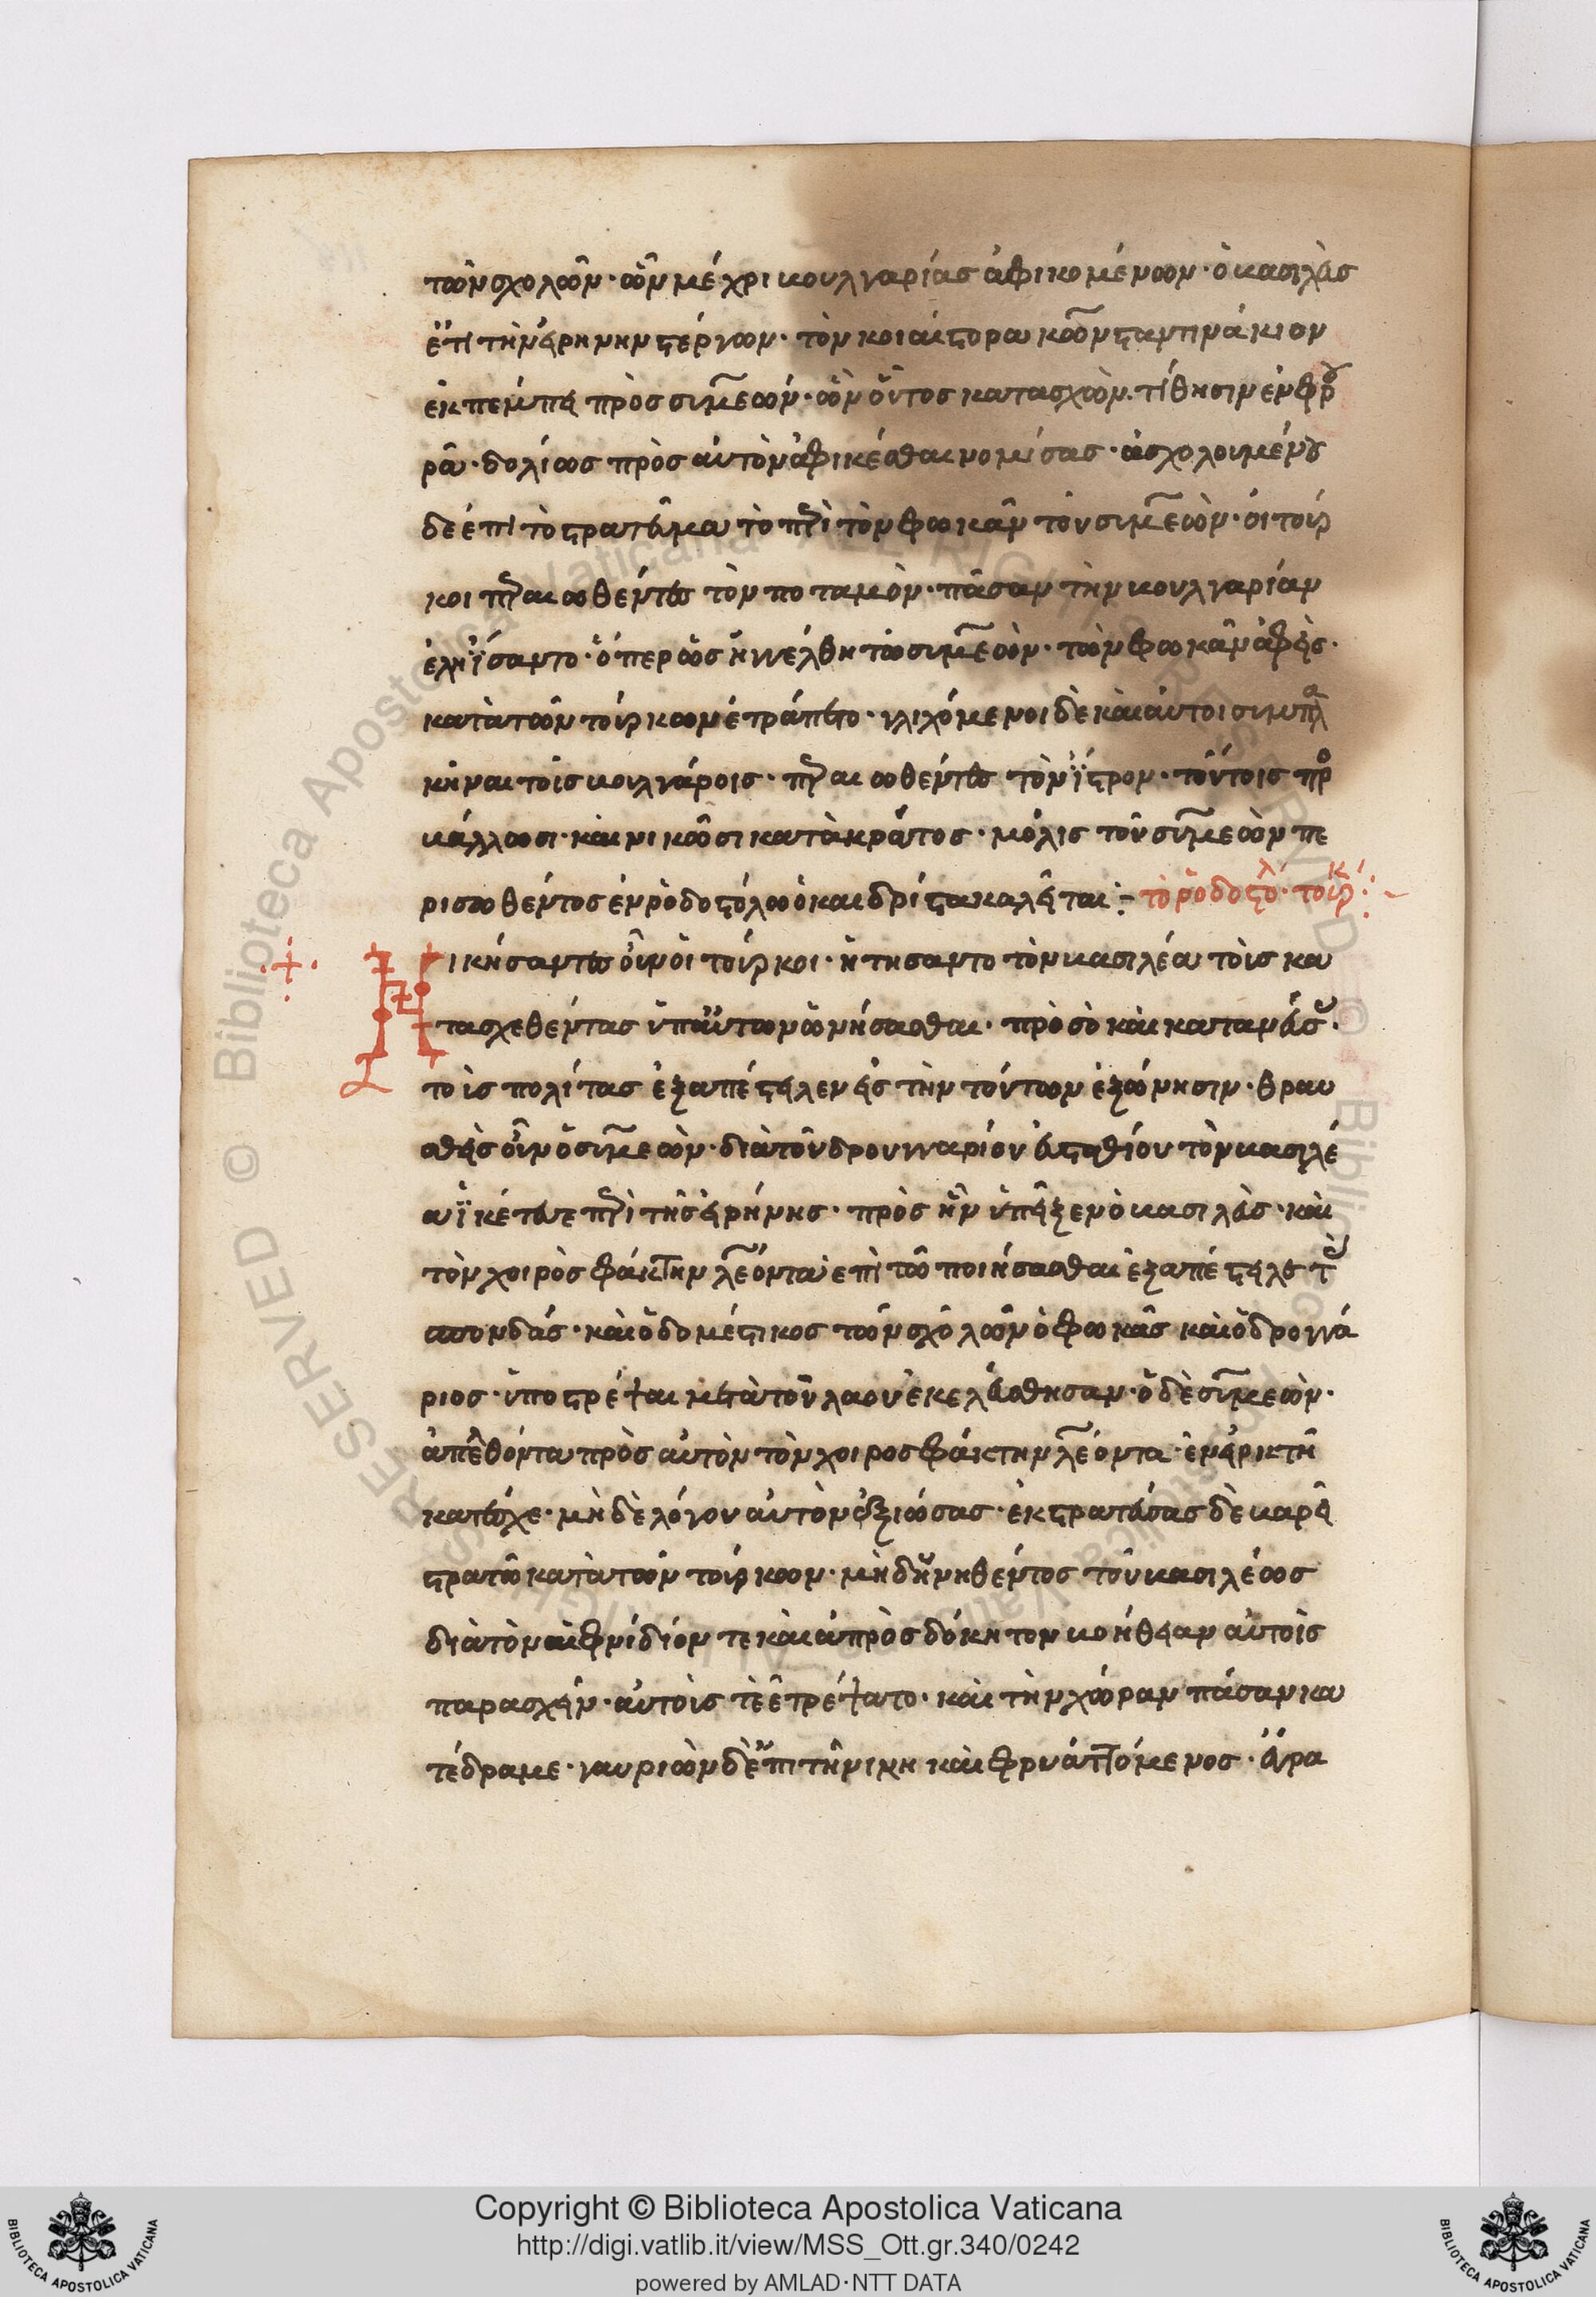 τῶν σχολῶν· ὧν μέχρι βουλγαρίας ἀφικομένων· ὁ βασιλεὺς
ἔτι τὴν εἰρήνην στέργων· τὸν κοιαίστορα κωνσταντινάκιον
ἐκπέμπει πρὸς συμεών· ὃν οὗτος κατασχὼν τίθησιν ἐν φρου
ρᾷ· δολίως πρὸς αὐτὸν ἀφικέσθαι νομίσας· ἀσχολουμένου
δὲ ἐπὶ τὸ στράτευμα τὸ περὶ τὸν φωκᾶν τοῦ συμεὼν· οἱ τοῦρ
κοι περαιωθέντες τὸν ποταμὸν· πᾶσαν τὴν βουλγαρίαν
ἐληΐσαντο· ὅπερ ὡς ἠγγέλθη τῷ συμεὼν· τὸν φωκᾶν ἀφεὶς·
κατὰ τῶν τούρκων ἐτράπετο· γλιχόμενοι δὲ καὶ αὐτοὶ συμπλα
κῆναι τοῖς βουλγάροις· περαιωθέντες τὸν ἴστρον· τούτοις προ
βάλλωσι· καὶ νικῶσι κατὰ κράτος· μόλις τοῦ συμεὼν πε
ρισωθέντος ἐν ῥοδοστόλω ὃ καὶ δρίστα καλεῖται :- τὸ ῥοδοστολ· τουρκ :~
Νικήσαντες οὖν οἱ τοῦρκοι· ἤτησαντο τὸν βασιλέα τοὺς κα
τασχεθέντας ὑπ' αὐτῶν ὠνήσασθαι· πρὸς ὃ καὶ κατανεύσας·
τοὺς πολίτας ἐξαπέστειλεν εἰς τὴν τούτων ἐξώνησιν· θραυ
σθεὶς οὖν ὁ συμεὼν· διὰ τοῦ δρουγγαρίου εὐσταθίου τὸν βασιλέ
α ἱκέτευε περὶ τῆς εἰρήνης· πρὸς ἣν ὑπεῖξεν ὁ βασιλεὺς· καὶ
τὸν χοιροσφάκτην λέοντα ἐπὶ τῷ ποιήσασθαι ἐξαπέστειλε τὰς
σπονδάς· καὶ ὁ δομέστικος τῶν σχολῶν ὁ φωκᾶς καὶ ὁ δρογγά
ριος· ὑποστρέψαι μετὰ τοῦ λαοῦ ἐκελεύσθησαν· ὁ δὲ συμεὼν·
ἀπελθόντα πρὸς αὐτὸν τὸν χοιροσφάκτην λέοντα· ἐν εἰρκτῇ
κατεῖχε· μὴ δὲ λόγου αὐτὸν ἀξιώσας· ἐκστρατεύσας δὲ βαρεῖ
στρατῶ κατὰ τῶν τούρκων· μὴ δυνηθέντος τοῦ βασιλέως
διὰ τὸν αἰφνίδιόν τε καὶ ἀπροσδόκητον βοήθειαν αὐτοῖς
παρασχεῖν· αὐτοὺς τὲ ἐτρέψατο· καὶ τὴν χώραν πᾶσαν κα
τέδραμε· γαυριῶν δὲ ἐπὶ τῇ νίκη καὶ φρυαττόμενος· εὗρα
Copyright © Biblioteca Apostolica Vaticana
http://digi.vatlib.it/view/MSS_Ott.gr.340/0242
powered by AMLAD·NTT DATA